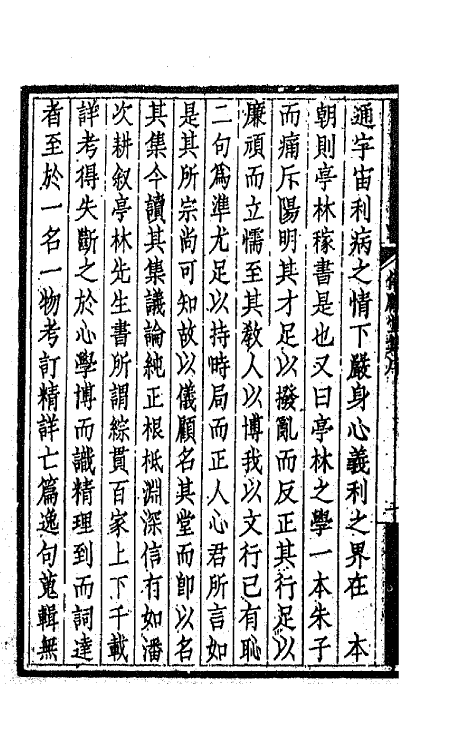 通宇宙利病之情下嚴身心義利之界在　本
朝則亭林稼書是也又曰亭林之學一本朱子
而痛斥陽明其才足以撥亂而反正其行足以
廉頑而立懦至其教人以博我以文行己有恥
二句爲準尤足以持時局而正人心君所言如
是其所宗尚可知故以儀顧名其堂而卽以名
其集今讀其集議論純正根柢淵深信有如潘
次耕叙亭林先生書所謂綜貫百家上下千載
詳考得失斷之於心學博而識精理到而詞達
者至於一名一物考訂精詳亡篇逸句蒐輯無